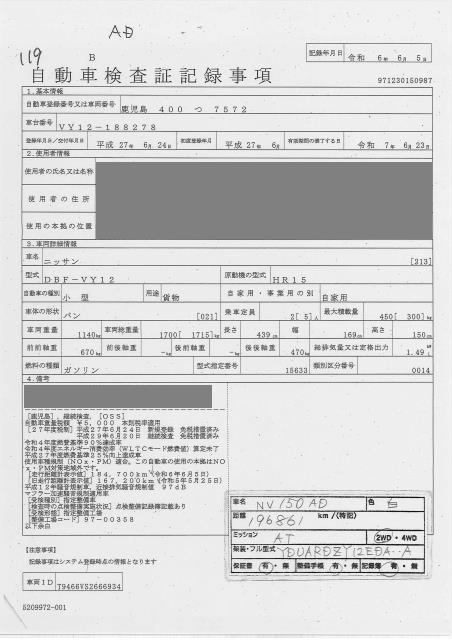 AD
119
B
記録年月日 令和 6年 6月 5日
自動車検査証記録事項
971230150987
1.基本情報
自動車登録番号又は車両番号 鹿児島 400 つ 7572
車台番号 VY12-188278
登録年月日/交付年月日 平成 27年 6月 24日 初度登録年月 平成 27年 6月 有効期間の満了する日 令和 7年 6月 23日
2.使用者情報
使用者の氏名又は名称
使用者の住所
使用の本拠の位置
3.車両詳細情報
車名 ニッサン [213]
型式 DBF-VY12 原動機の型式 HR15
自動車の種別 小型 用途 貨物 自家用・事業用の別 自家用
車体の形状 バン [021] 乗車定員 2[ 5]人 最大積載量 450[ 300]kg
車両重量 1140kg 車両総重量 1700[ 1715]kg 長さ 439cm 幅 169cm 高さ 150cm
前前軸重 670kg 前後軸重 -kg 後前軸重 -kg 後後軸重 470kg 総排気量又は定格出力 1.49
燃料の種類 ガソリン 型式指定番号 15633 類別区分番号 0014
4.備考
[鹿児島],継続検査,[OSS]
自動車重量税額 ¥5,000 本則税率適用
[27年度税制]平成27年6月24日 新規登録 免税措置済み
平成29年6月20日 継続検査 免税措置済み
令和4年度燃費基準90%達成車
令和4年度エネルギー消費効率(WLTCモード燃費値)算定未了
平成27年度燃費基準25%向上達成車
使用車種規制(NOx・PM)適合。この自動車の使用の本拠はNO
x・PM対策地域外です。
[走行距離計表示値]184,700km(令和6年6月5日)
[旧走行距離計表示値]167,200km(令和5年5月25日)
平成12年騒音規制車、近接排気騒音規制値 97dB
マフラー加速騒音規制適用車
[受検種別]指定整備車
[検査時の点検整備実施状況]点検整備記録簿記載あり
[受検形態]指定整備工場
[整備工場コード]97-00358
以下余白
車名 NV150AD 色 白
距離 196861 km/(特記)
ミッション AT 2WD・4WD
架装・フル型式 YDUARDZY12EDA--A
保証書 有・無 整備手帳 有・無 記録簿 有・無
【注意事項】
記録事項はシステム登録時点の情報となります
車両ID T9466VS2666934
5209972-001